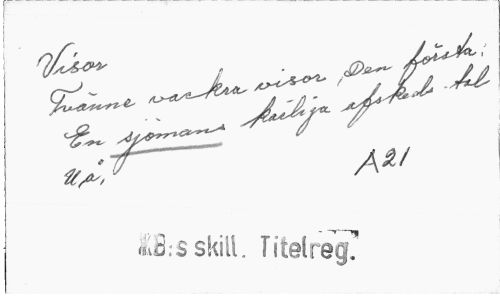 Visor
Tvänne vackra visor, Den första:
En sjömans kärliga afskeds-tal
U.å.
A21
KB:s skill. Titelreg.